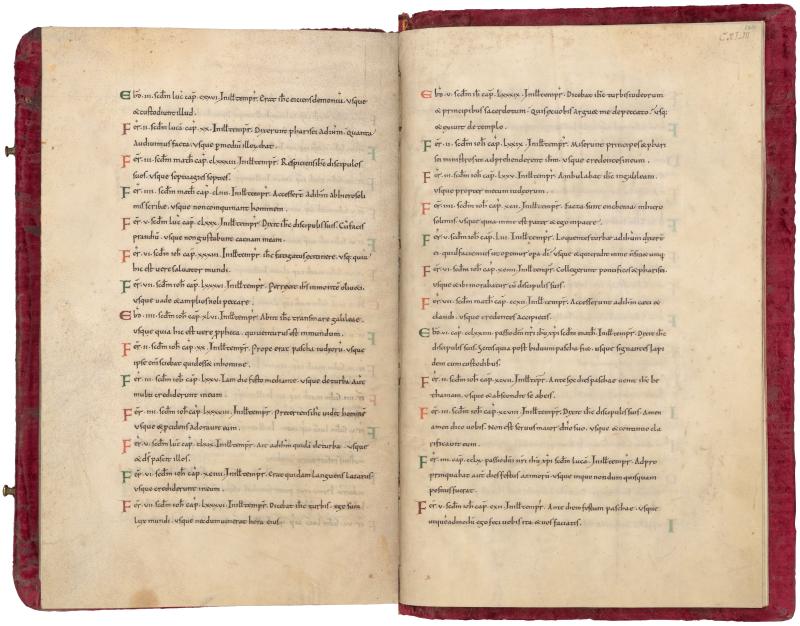 Ebđ. III. scđm luc cap. CXXVI. In illo tempr. Erat ihc eiciens demoniū. usque
& custodiunt illud.
Fer. II. scđm lucā cap. XX. In illo tempr. Dixerunt pharisei ad ihm. quanta
audiuimus facta. usque p mediū illorū ibat.
Fer. III. scđm math cap. In illo tempr. Respiciens ihc discipulos
suos. usque septuagies septies.
Fer. IIII. scđm math cap. CLIIII. In illo tempr. Accesserūt ad ihm ab hierosoli
mis scribe. usque non coinquinant hominem.
Fer. V. scđm luc cap. CLXXX. In illo tempr. Dixit ihc discipulis suis. Cū facis
prandiū. usque non gustabunt caenam meam.
Fer. VI. scđm ioh cap. XXXIII. In illo tempr. ihc fatigatus ex itinere. usq; quia
hic est uere saluator mundi.
Fer. VII. scđm ioh cap. LXXXVI. In illo tempr. Perrexit ihc in montē oliueti.
usque uade & amplius noli peccare.
Ebđ. IIII. scđm ioh cap. XLVI. In illo tempr. Abiit ihc trans mare galileae.
usque quia hic est uere ppheta. qui uenturus est in mundum.
Fer. II. scđm ioh cap. XX. In illo tempr. Prope erat pascha iudeorū. usque
ipse enī sciebat quid esset in homine.
Fer. III. scđm ioh cap. LXXV. In illo tempr. Iam die festo mediante. usque de turba autē
multi crediderunt in eum.
Fer. IIII. scđm ioh cap. LXXXVIII. In illo tempr. Preteriens ihc uidit hominē
usque & pcidens adorauit eum.
Fer. V. scđm luc cap. In illo tempr. Ait ad ihm quidā de turba. usque
& ds pascit illos.
Fer. VI. scđm ioh cap. XCIIII. In illo tempr. Erat quidam languens lazarus.
usque crediderunt in eum.
Fer. VII. scđm ioh cap. LXXXVI. In illo tempr. Dicebat ihc turbis. ego sum
lux mundi. usque necdum uenerat hora eius.
Ebđ. V. scđm ioh cap. LXXXIX. In illo tempr. Dicebat ihc turbis iudeorum
& principibus sacerdotum. Quis ex uobis arguet me de peccato. usq;
& exiuit de templo.
Fer. II. scđm ioh cap. LXXIX. In illo tempr. Miserunt principes & phari
sei ministros ut adprehenderent ihm. usque credentes in eum.
Fer. III. scđm ioh cap. LXXV. In illo tempr. Ambulabat ihc in galileam.
usque propter metum iudeorum.
Fer. IIII. scđm ioh cap. XCII. In illo tempr. Facta sunt encenia in hiero
solimis. usque quia in me est pater & ego in patre.
Fer. V. scđm ioh cap. LIII. In illo tempr. Loquente turbae ad ihm dixerūt
ei. quid faciemus ut operemur opa dī. usque
Fer. VI. scđm ioh cap. XCVIII. In illo tempr. Collegerunt pontifices & pharisei.
usque & ibi morabatur cū discipulis suis.
Fer. VII. scđm math cap. CCXII. In illo tempr. Accesserunt ad ihm caeci &
claudi. usque credentes accipietis.
Ebđ. VI. cap. CCLXXIIII. passio dnī nrī ihū xpī scđm math. In illo tempr. Dixit ihc
discipulis suis. scitis quia post biduum pascha fiet. usque signantes lapi
dem cum custodibus.
Fer. II. scđm ioh cap. XCVII. In illo tempr. Ante sex dies paschae uenit ihc be
thaniam. usque & abscondit se ab eis.
Fer. III. scđm ioh cap. XCVIII. In illo tempr. Dixit ihc discipulis suis. Amen
amen dico uobis. Non est seruus maior dno suo. usque & continuo cla
rificauit eum.
Fer. IIII. cap. CCLX. passio dnī nrī ihū xpī scđm lucā. In illo tempr. Adpro
pinquabat autē dies festus azimorū. usque in quo nondum quisquam
positus fuerat.
Fer. V. scđm ioh cap. CXII. In illo tempr. Ante diem festum paschae. usque
ut quēadmodū ego feci uobis ita & uos faciatis.